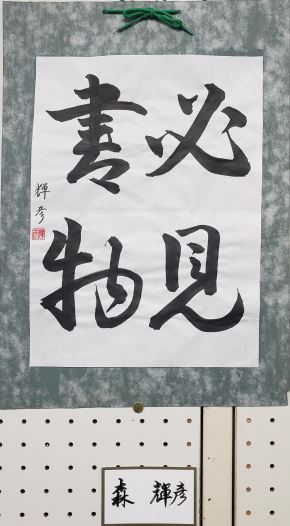 必見
書物
輝彦
森 輝彦